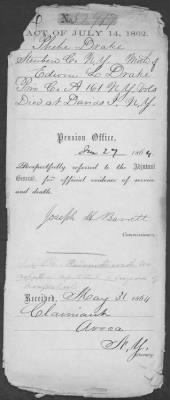 ACT OF JULY 14, 1862.
Phebe Drake
Steuben Co. N.Y. Moth of
Edwin L. Drake
Pri. Co. A. 161 N.Y. Vols
Died at Davids I. N.Y.
Pension Office,
27, 1864
Respectfully referred to the Adjutant
General, for official evidence of service
and death.
Joseph H Barrett
Commissioner.
Received, May 31 1864
Claimant
Avoca
N.Y.